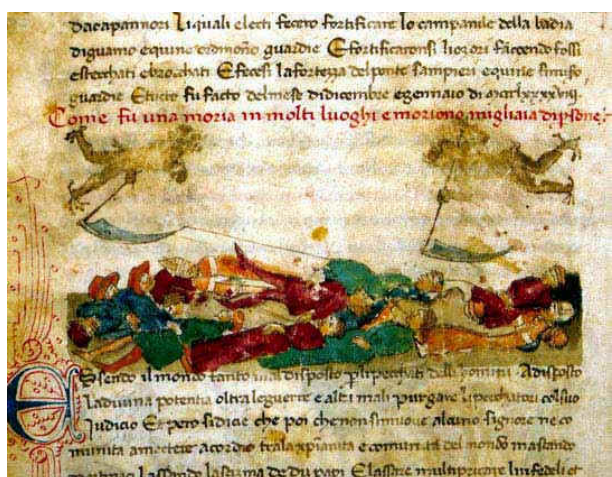 dacapannori Liquali electi fecero fortificare lo campanile della badia
diguamo equine ordinono guardie Efortificaronsi liozori faccendo fossi
estecchati ebrocchati Efecesi lafortezza delponte sampieri equine
guardie Etucto fu facto delmese didicembre egennaio di
Come fu una moria in molti luoghi e morieno migliaia di
Essendo il mondo tanto mal disposto plipecchati delli homini Adisposto
Ladivina potentia oltra leguerre e altri mali purgare lipecchatori colsuo
Judicio Et pero sidice che poi che non simuove alcuno signore ne co
munita amectere acordio tralaxpianita e comunita del mondo mastando
Lassando di du papi Elassare multipricare linfedeli et